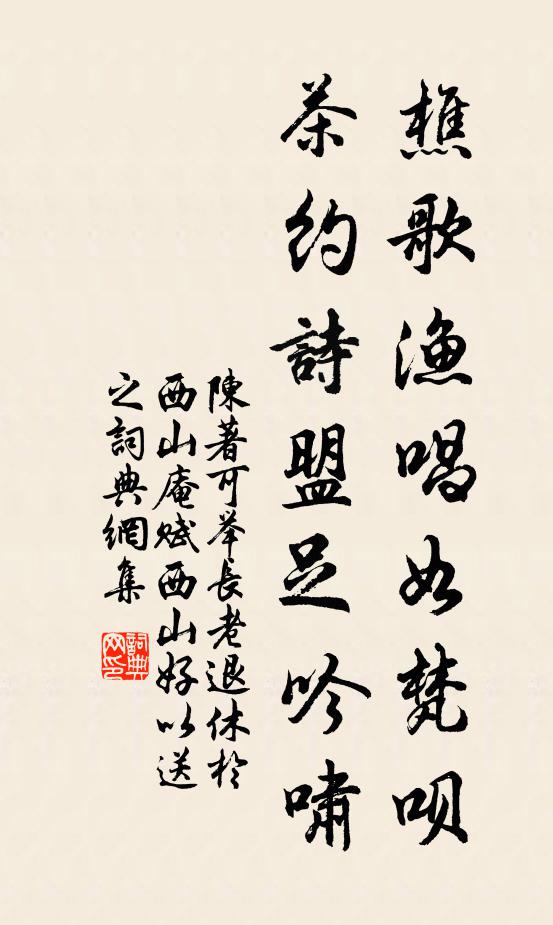 樵歌漁唱如梵呗
茶約詩盟足吟嘯
陳著可举長老退休於
西山庵赋西山好以送
之詞典網集
詞典
网印